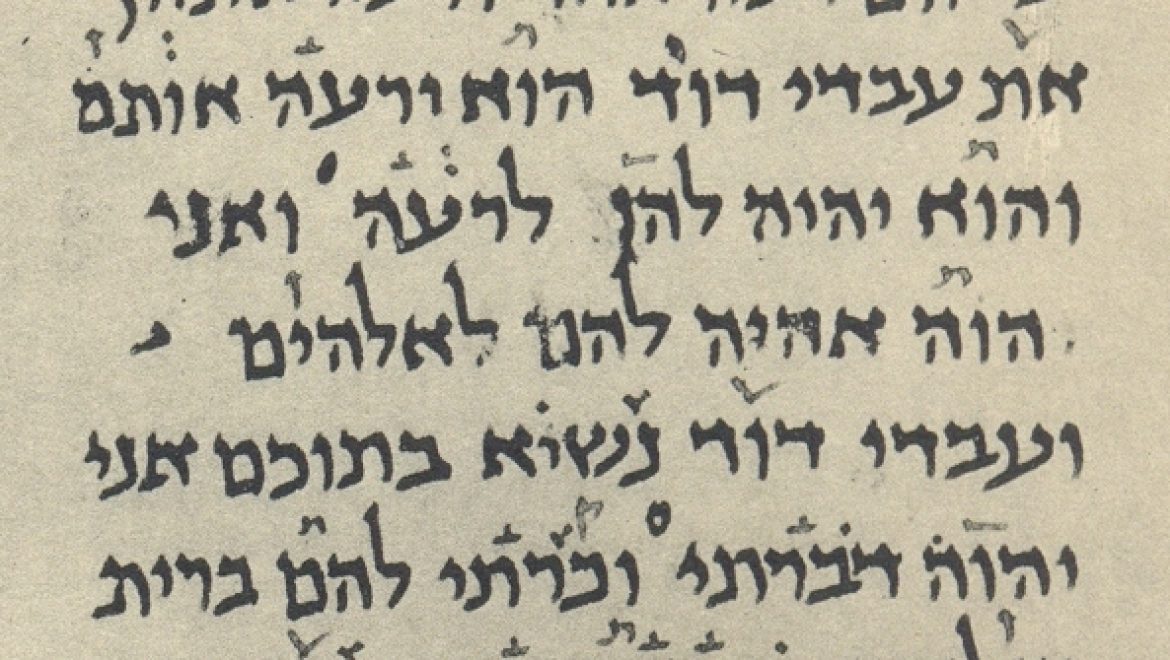 את עבדי דוד הוא ירעה אותם
והוא יהיה להן לרעה ואני
יהוה אהיה להם לאלהים
ועבדי דוד נשיא בתוכם אני
יהוה דברתי וכרתי להם ברית